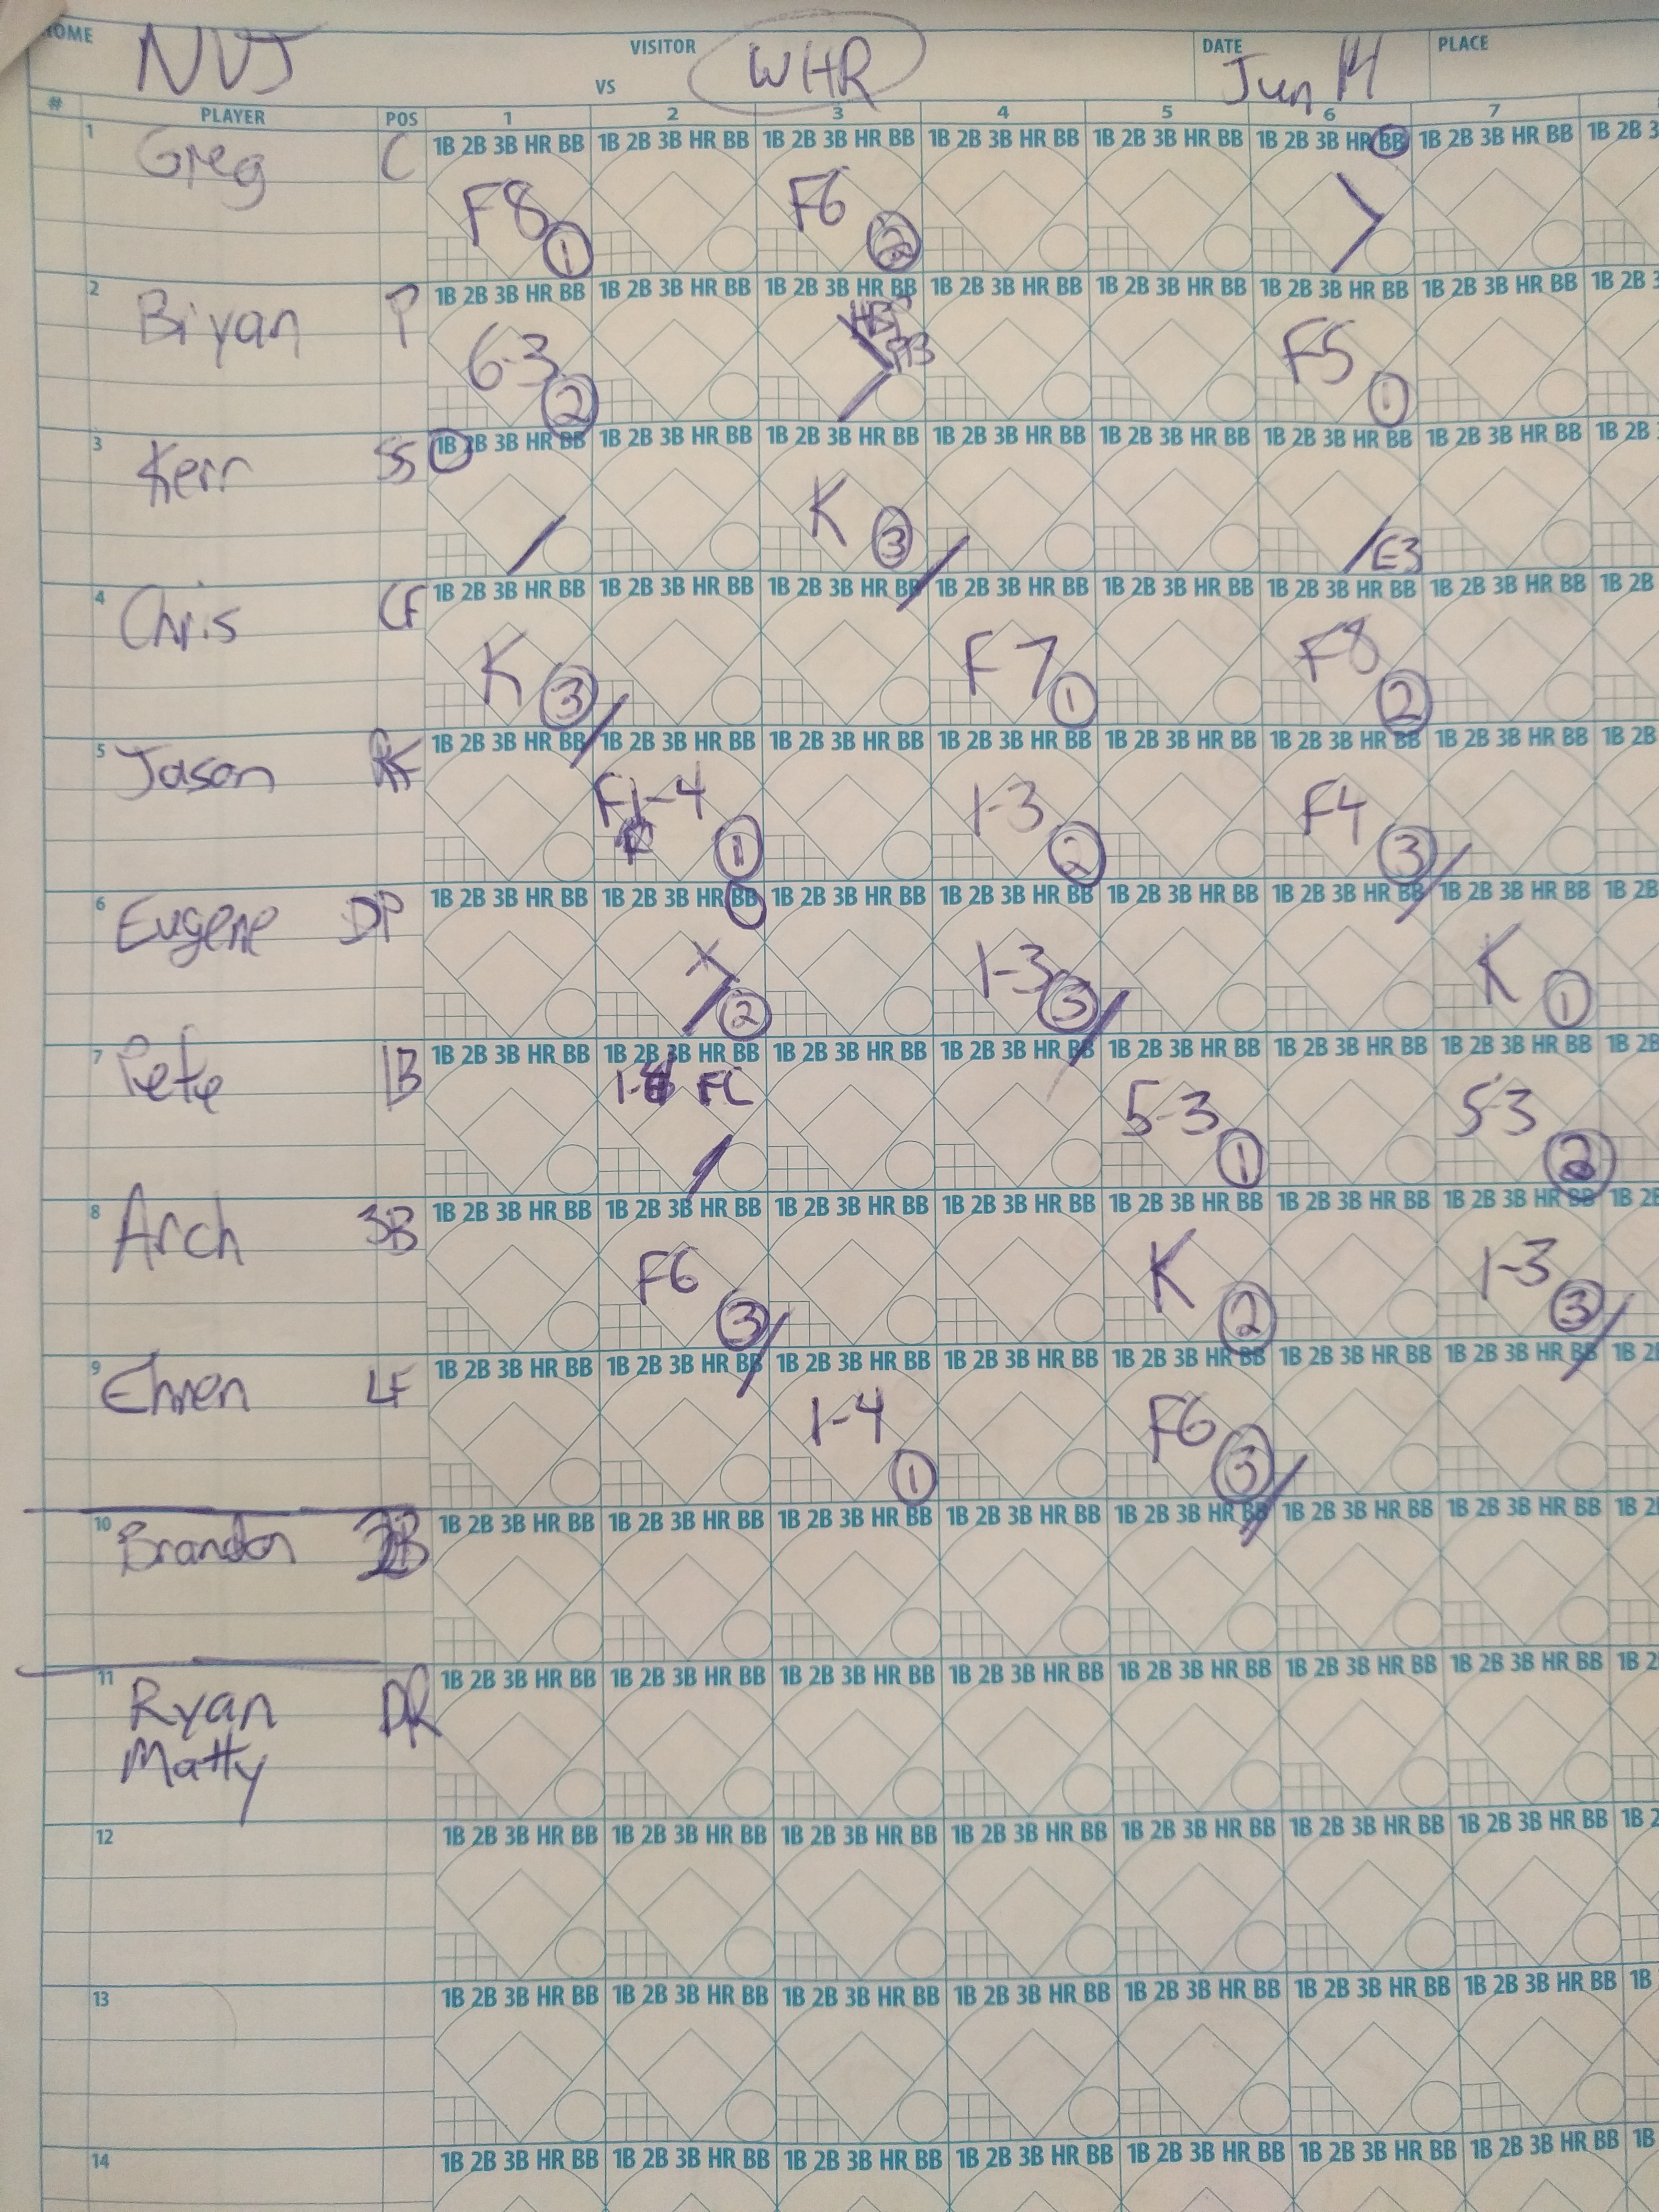 HOME NVJ VS VISITOR WHR DATE Jun 14 PLACE
# PLAYER POS 1 2 3 4 5 6 7
1 Greg C 1B 2B 3B HR BB 1B 2B 3B HR BB 1B 2B 3B HR BB 1B 2B 3B HR BB 1B 2B 3B HR BB 1B 2B 3B HR BB 1B 2B 3B HR BB 1B 2B 3
F8 1 F6 2
2 Biyan P 1B 2B 3B HR BB 1B 2B 3B HR BB 1B 2B 3B HR BB 1B 2B 3B HR BB 1B 2B 3B HR BB 1B 2B 3B HR BB 1B 2B 3B HR BB 1B 2B 3
6-3 2 F5 1
3 Kerr SS 1B 2B 3B HR BB 1B 2B 3B HR BB 1B 2B 3B HR BB 1B 2B 3B HR BB 1B 2B 3B HR BB 1B 2B 3B HR BB 1B 2B 3B HR BB 1B 2B
K 3 E3
4 Chris CF 1B 2B 3B HR BB 1B 2B 3B HR BB 1B 2B 3B HR BB 1B 2B 3B HR BB 1B 2B 3B HR BB 1B 2B 3B HR BB 1B 2B 3B HR BB 1B 2B
K 3 F7 1 F8 2
5 Jason RF 1B 2B 3B HR BB 1B 2B 3B HR BB 1B 2B 3B HR BB 1B 2B 3B HR BB 1B 2B 3B HR BB 1B 2B 3B HR BB 1B 2B 3B HR BB 1B 2B
F1-4 1 1-3 2 F4 3
6 Eugene DP 1B 2B 3B HR BB 1B 2B 3B HR BB 1B 2B 3B HR BB 1B 2B 3B HR BB 1B 2B 3B HR BB 1B 2B 3B HR BB 1B 2B 3B HR BB 1B 2B
X 2 1-3 3 K 1
7 Pete 1B 1B 2B 3B HR BB 1B 2B 3B HR BB 1B 2B 3B HR BB 1B 2B 3B HR BB 1B 2B 3B HR BB 1B 2B 3B HR BB 1B 2B 3B HR BB 1B 2B
1-4 FC 5-3 1 5-3 2
8 Arch 3B 1B 2B 3B HR BB 1B 2B 3B HR BB 1B 2B 3B HR BB 1B 2B 3B HR BB 1B 2B 3B HR BB 1B 2B 3B HR BB 1B 2B 3B HR BB 1B 2B
F6 3 K 2 1-3 3
9 Ehren LF 1B 2B 3B HR BB 1B 2B 3B HR BB 1B 2B 3B HR BB 1B 2B 3B HR BB 1B 2B 3B HR BB 1B 2B 3B HR BB 1B 2B 3B HR BB 1B 2
1-4 1 F6 3
10 Brandon 1B 2B 3B HR BB 1B 2B 3B HR BB 1B 2B 3B HR BB 1B 2B 3B HR BB 1B 2B 3B HR BB 1B 2B 3B HR BB 1B 2B 3B HR BB 1B 2
11 Ryan DR 1B 2B 3B HR BB 1B 2B 3B HR BB 1B 2B 3B HR BB 1B 2B 3B HR BB 1B 2B 3B HR BB 1B 2B 3B HR BB 1B 2B 3B HR BB 1B 2
Matty
12 1B 2B 3B HR BB 1B 2B 3B HR BB 1B 2B 3B HR BB 1B 2B 3B HR BB 1B 2B 3B HR BB 1B 2B 3B HR BB 1B 2B 3B HR BB 1B 2
13 1B 2B 3B HR BB 1B 2B 3B HR BB 1B 2B 3B HR BB 1B 2B 3B HR BB 1B 2B 3B HR BB 1B 2B 3B HR BB 1B 2B 3B HR BB 1B
14 1B 2B 3B HR BB 1B 2B 3B HR BB 1B 2B 3B HR BB 1B 2B 3B HR BB 1B 2B 3B HR BB 1B 2B 3B HR BB 1B 2B 3B HR BB 1B